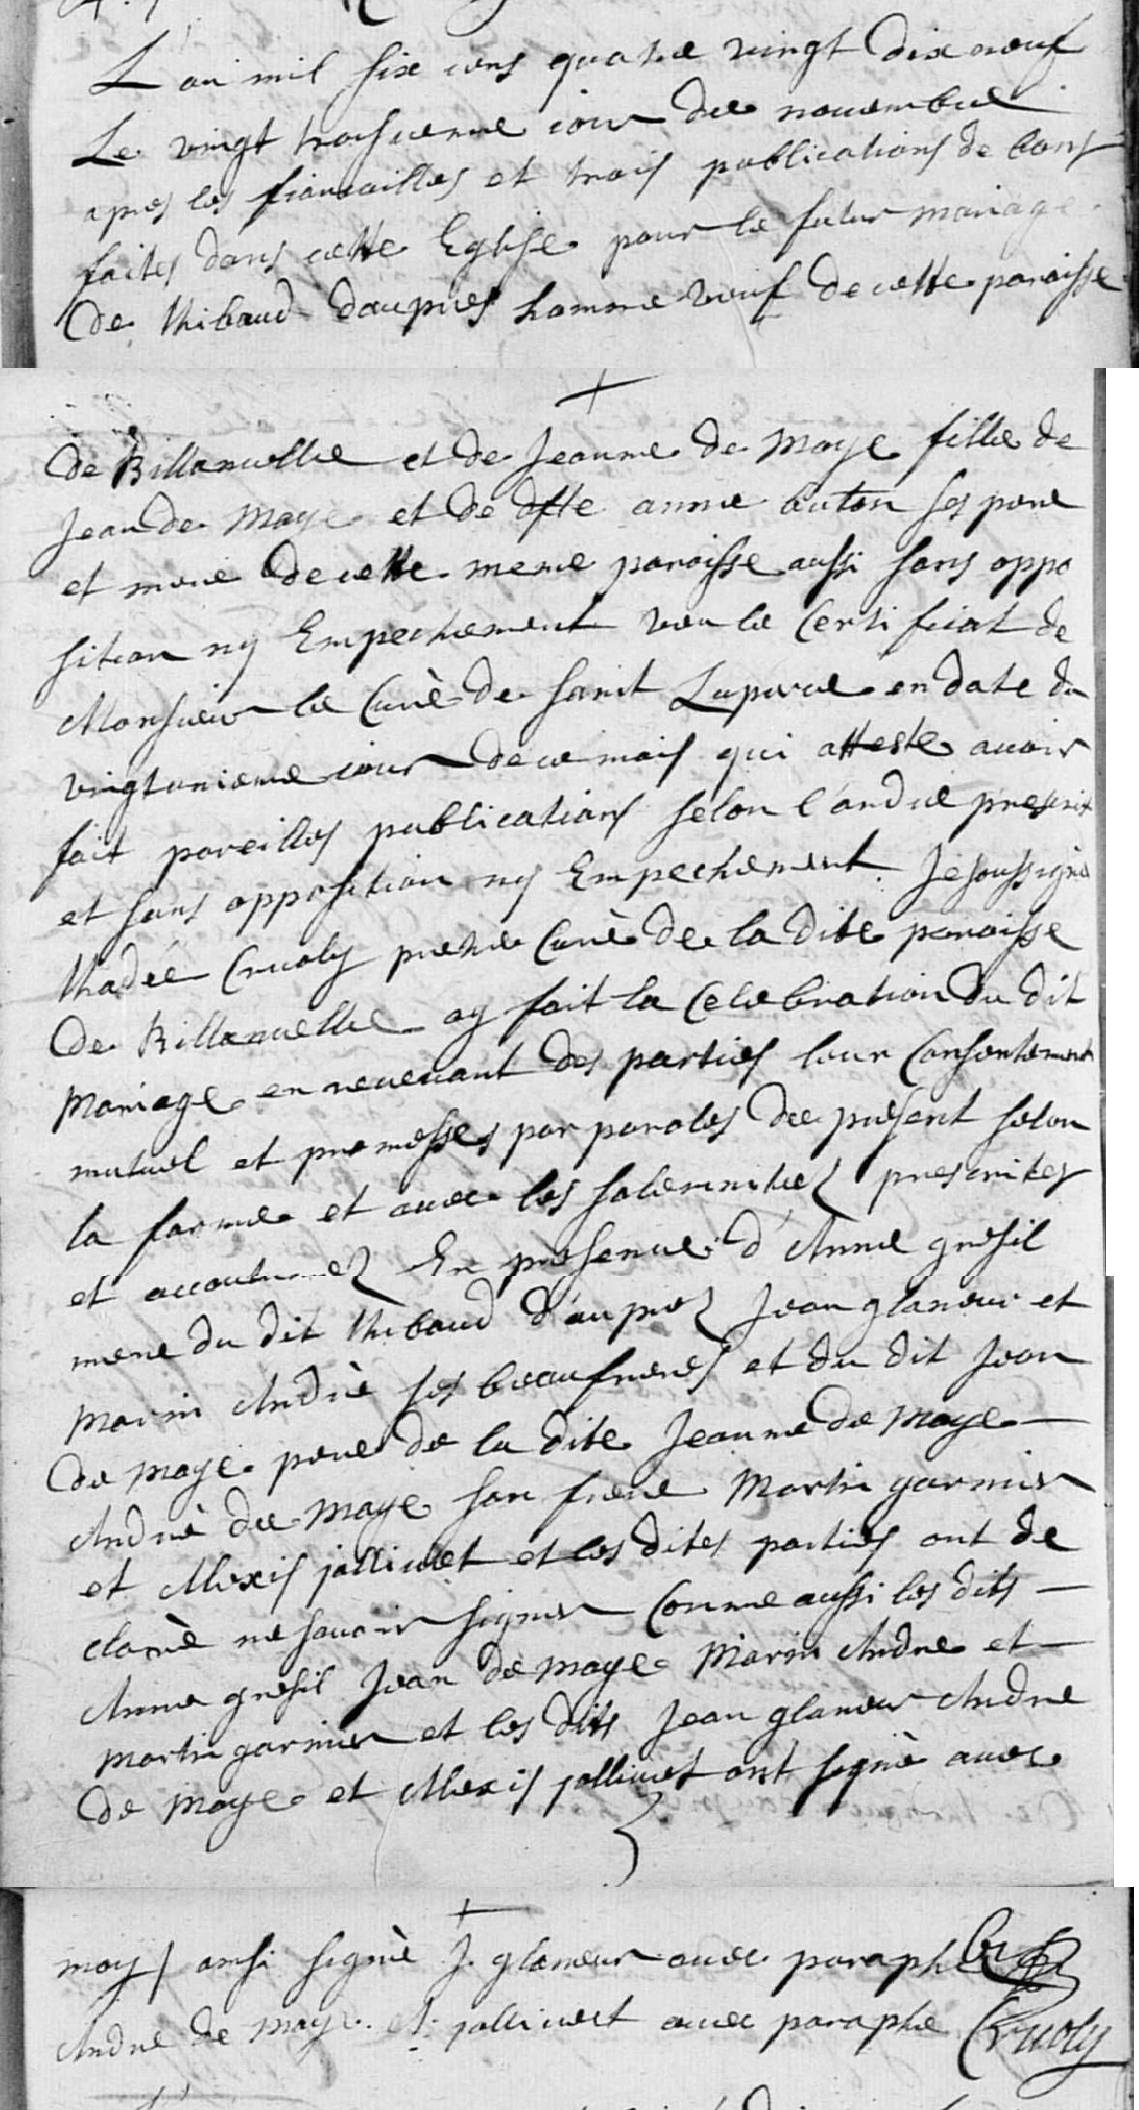 L an mil six cens quatre vingt dix neuf
Le vingt troisieme iour de nouembre
apres les fiancailles et trois publications de bans
faites dans cette Eglise pour le futur mariage
de thibaud daupres homme veuf de cette paroisse
de Billancelle et de Jeanne de Moye fille de
Jean de Moye et de dfte anne auton ses pere
et mere de cette meme paroisse aussi sans oppo
sition ny Empechement veu le Certificat de
Monsieur le Curè de sainct Luperce en date du
vingtunieme iour de ce mois qui atteste auoir
fait pareilles publications selon l'ordre prescrit
et sans opposition ny Empechement. Je soussignè
thadée Cruoly pretre Curè de la dite paroisse
de Billancelle ay fait la Celebration du dit
Mariage en receuant des parties leur Consentement
mutuel et promesses par paroles de present selon
la forme et auec les solemnitez prescrites
et accoutumez En presence d'Anne gresil
mere du dit thibaud d'auprez Jean glaneur et
Marin Andrè ses beaufreres et du dit Jean
de Moye pere de la dite Jeanne de Moye
Andrè de Moye son frere Martin garnier
et Alexis jalliuet et les dites parties ont de
clarè ne sauoir signer Comme aussi les dits
Anne gresil Jean de Moye Marin Andre et
Martin garnier et les dits Jean glaneur Andre
de Moye et Alexis jalliuet ont signè auec
moy / ainsi signè J. glaneur auec paraphe
Andre de Moye. A. jalliuet auec paraphe Cruoly